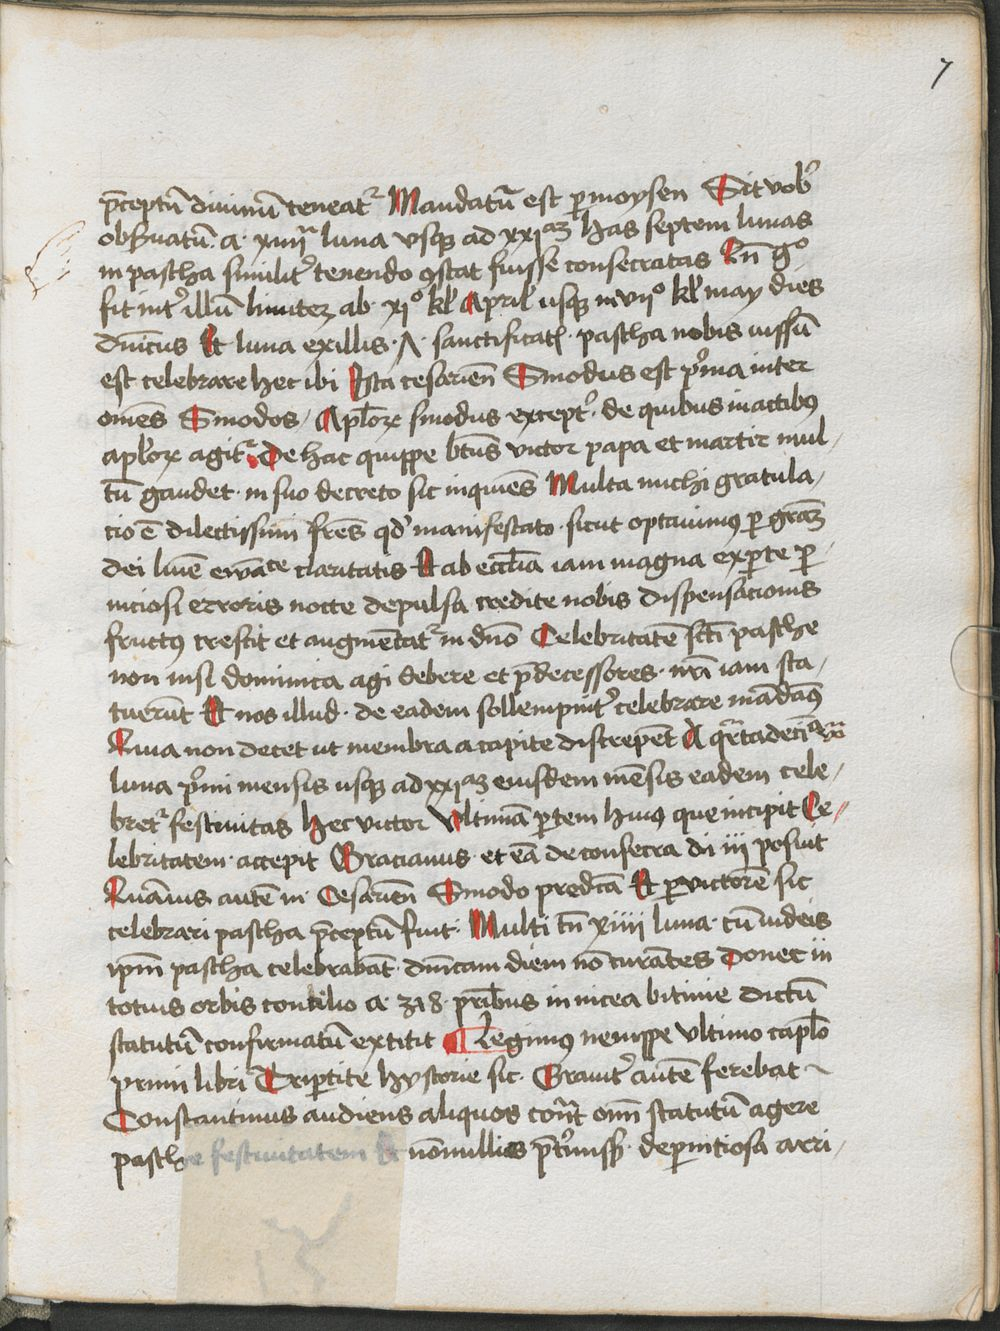 7
p̄ceptū diuinū teneat᷒ Mandatū est ꝑ moysen Sit vob᷒
obẜuatū · a · xiiijᵃ luna vsqꝫ ad xxjᵃᵐ has septem lunas
in pascha similit᷒ tenendo ꝯstat fuisse consecratas Qn̄ gͦ
fit int᷒ illū limitez ab · xjͦ kl᷒ April᷒ usqꝫ in vijͦ kl᷒ may dies
dnīcus Et luna ex illis · sanctificatꝭ · pascha nobis iussū
est celebrare hec ibi Ista cesarien̄ Sinodus est p᷒ma inter
om̄es Sinodos / Apl̄oꝝ sinodus except᷒ · de quibus in actibꝰ
apl̄oꝝ agit᷒ De hac quippe bt̄us victor papa et martir mul /
tū gaudet · in suo decreto sic inquiēs Multa michi gratula /
cio ē dilectissimi fr̄es qd᷒ manifestato · sicut optauimꝰ ꝑ gr̄aꝫ
dei claritatis Et ab eccl̄ia iam magna ex ꝑte ꝑ
niciosi erroris nocte depulsa credite nobis dispensacionis
fructꝰ crescit et augmētat᷒ in dn̄o Celebritatē sct̄i pasche
non nisi dominica agi debere et p̄decessores · nr̄i iam sta /
tuerūt Et nos illud · de eadem sollempnit᷒ celebrare mādamꝰ
Quia non decet ut membra a capite discrepēt A qr̄tadecīa
luna p᷒mi mensis usqꝫ ad xxjᵃᵐ eiusdem mēsis eadem cele /
bret᷒ festiuitas hec victor Vltimā ꝑtem huiꝰ que incipit Ce /
lebritatem · accepit Gracianus · et eā de consecra di iij posuit
Quāuis autē in Cesarien̄ Sinodo predc̄a Et ꝑ victorē sic
celebrari pascha p̄ceptū fuit · Multi tn̄ xiiij luna · cū iudeis
ip̄m pascha celebrabāt · dnīcam diem nō curātes Donec in
totius orbis concilio a · 318 · pr̄ibus in nicea bitinie dictū
statutū confirmatū extitit ¶ Legimꝰ nempe vltimo capl̄o
primi libri Triꝑtite hystorie sic · Grauit᷒ autē ferebat ~
Constantinus audiens aliquos cont̄ om̄ statutū agere
pasche festiuitatem Et nōnullis p̄t᷒miss᷒ · de ꝑniciosa arri /